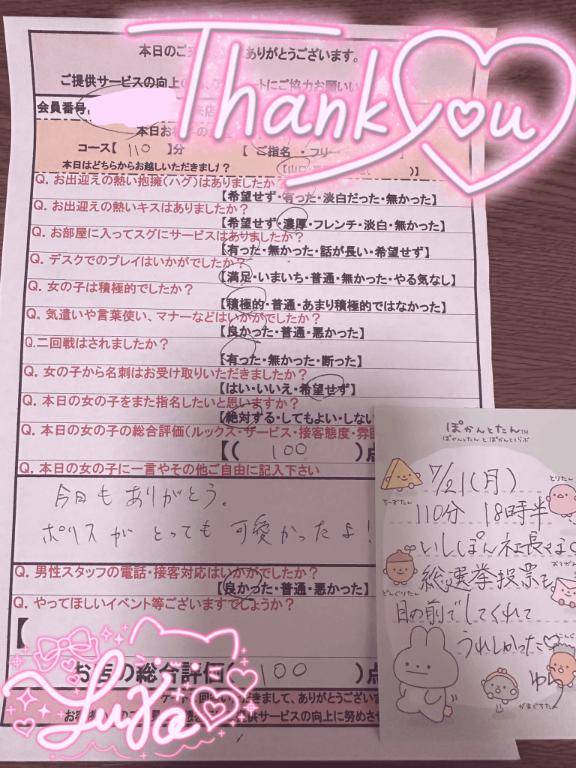 Thank You
本日のご ありがとうございます。
ご提供サービスの向上の にご協力お願い
会員番号
本日お
コース【 110 】分 【 ご指名 ・フリー
本日はどちらからお越しいただきました? 【山
Q. お出迎えの熱い抱擁(ハグ)はありましたか?
【希望せず・有った・淡白だった・無かった】
Q. お出迎えの熱いキスはありましたか?
【希望せず・濃厚・フレンチ・淡白・無かった】
Q. お部屋に入ってスグにサービスはありましたか?
【有った・無かった・話が長い・希望せず】
Q. デスクでのプレイはいかがでしたか?
【満足・いまいち・普通・無かった・やる気なし】
Q. 女の子は積極的でしたか?
【積極的・普通・あまり積極的ではなかった】
Q. 気遣いや言葉使い、マナーなどはいかがでしたか?
【良かった・普通・悪かった】
Q.二回戦はされましたか?
【有った・無かった・断った】
Q. 女の子から名刺はお受け取りいただきましたか?
【はい・いいえ・希望せず】
Q. 本日の女の子をまた指名したいと思いますか?
【絶対する・してもよい・しない
Q. 本日の女の子の総合評価(ルックス・サービス・接客態度・雰囲
【( 100 )点
Q. 本日の女の子に一言やその他ご自由に記入下さい
今日も ありがとう。
ポリス が とっても 可愛かったよ!
Q. 男性スタッフの電話・接客対応はいかがでしたか?
【良かった・普通・悪かった】
Q. やってほしいイベント等ございますでしょうか?
【
お店の総合評価( 100 )点
ケート 回 いただきまして、ありがとうござい
お客 提供サービスの向上に努めさせ
ぽかんとたん
ぽかんとたん と ぽかんとらぶ
7/21(月)
110分 18時半
いししぽん社長さま
総選挙投票も
目の前でしてくれて
うれしかった♡
ゆ
とりたん
ちーずたん
どんぐりたん
がまぐちたん